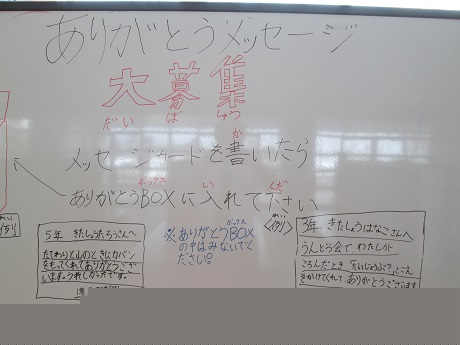 ありがとうメッセージ
大募集
だい ぼ しゅう
メッセージカードを書いたら
か
ありがとうBOXに入れて下さい
ボックス い くだ
れい
例
5年 きたしょうたろうさんへ
たてわりと山のときにカバン
をもってくれてありがとうござ
います。うれしかったです。
※ありがとうBOX
ボックス
の中はみないで
ください。
れい
〈例〉
3年 きたしょうはなこさんへ
うんどう会で わたしが
ころんだとき「だいじょうぶ？」とこえ
をかけてくれて、ありがとうございます